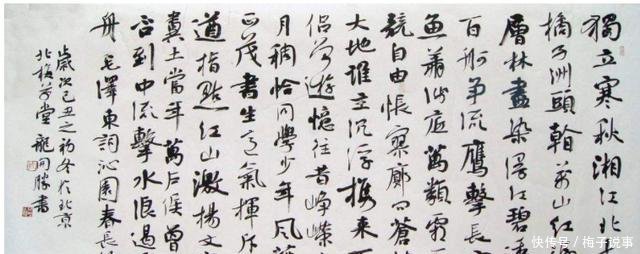 獨立寒秋湘江北
橘子洲頭看萬山红
層林盡染漫江碧透
百舸争流鷹擊長
魚翔淺底萬類霜
競自由悵寥廓问蒼
大地誰主沉浮携来
侣曾遊憶往昔崢嶸
月稠恰同學少年风
正茂書生意氣揮斥
遒指點江山激揚文
糞土當年萬户侯曾
否到中流擊水浪遏
舟毛澤東詞沁園春長
歲次己丑之初冬於北京
龍開勝書
快传号/梅子说事